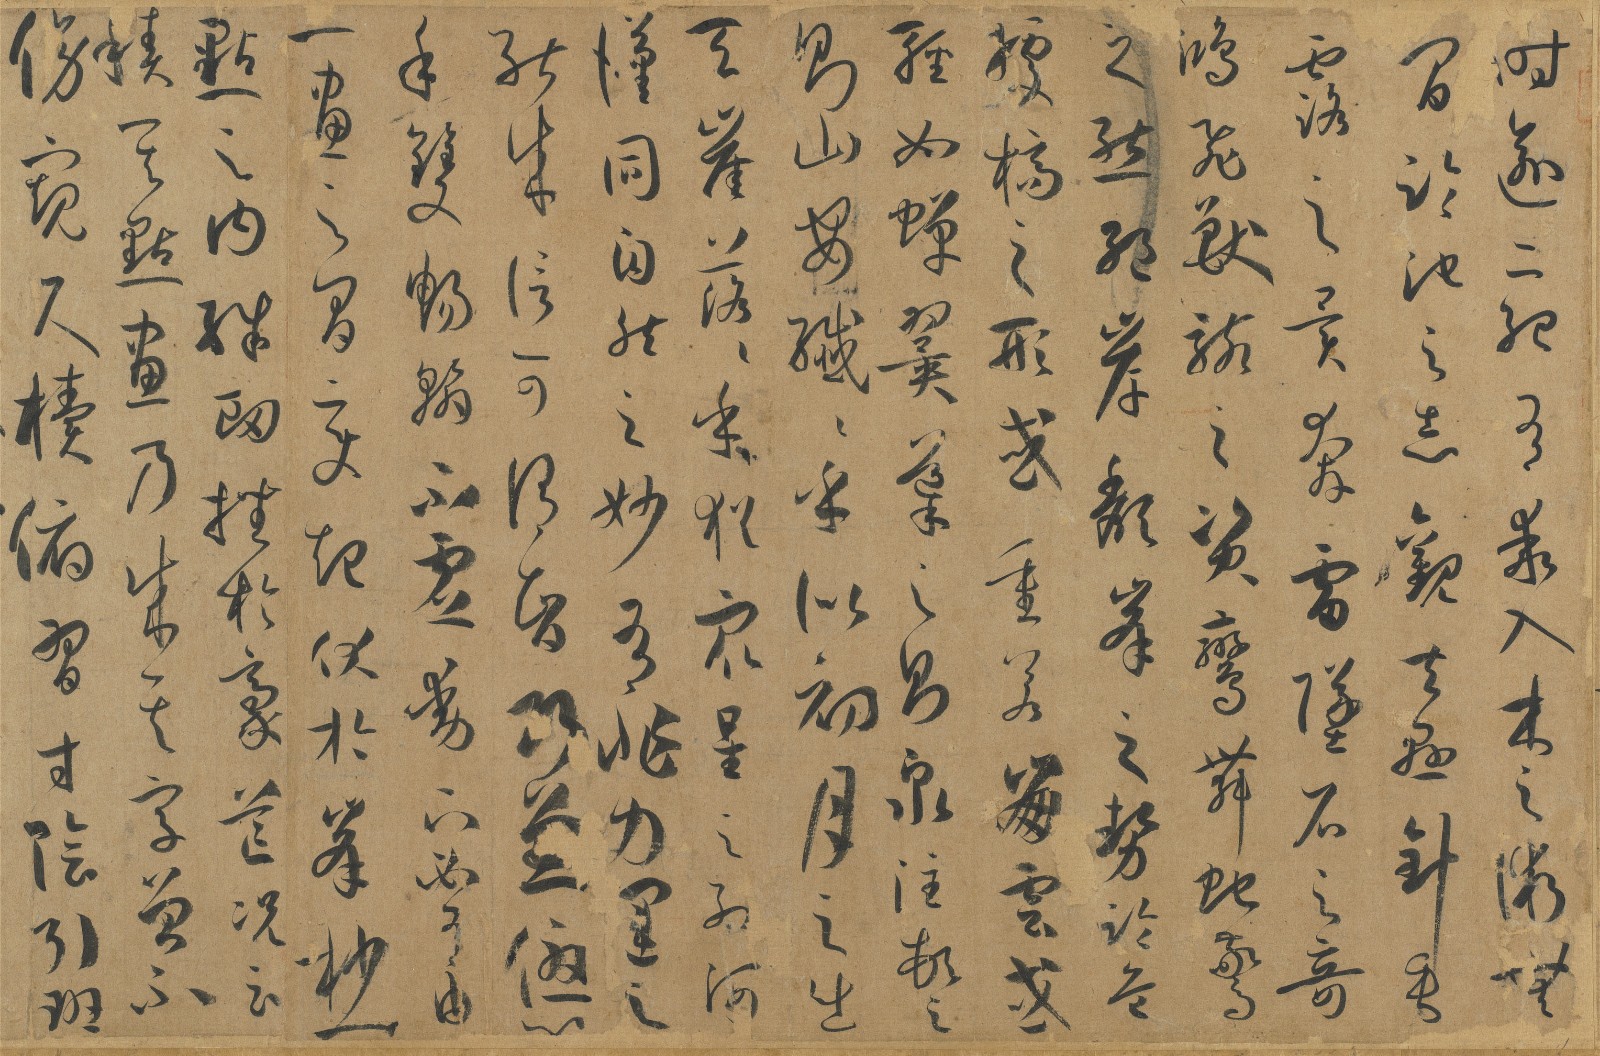 時逾二紀有乖入木之術無
間臨池之志觀夫懸針垂
露之異奔雷墜石之奇
鴻飛獸駭之資鸞舞蛇驚
之態絕岸頹峯之勢臨危
據槁之形或重若崩雲或
輕如蟬翼導之則泉注頓之
則山安纖〻乎似初月之出
天崖落〻乎猶眾星之列河
漢同自然之妙有非力運之
能成信可謂智巧兼優心
手雙暢翰不虛動下必有由
一畫之間變起伏於峯杪一
點之內殊衄挫於豪芒況云
積其點畫乃成其字曾不
傍窺尺牘俯習寸陰引班